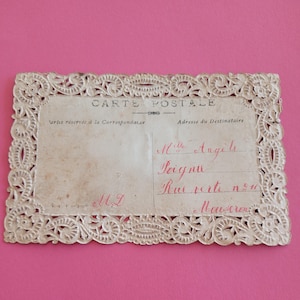 CARTE POSTALE
Partie réservée à la Correspondance
Adresse du Destinataire
Mlle Angèle
Rue verte n°
Mouscron